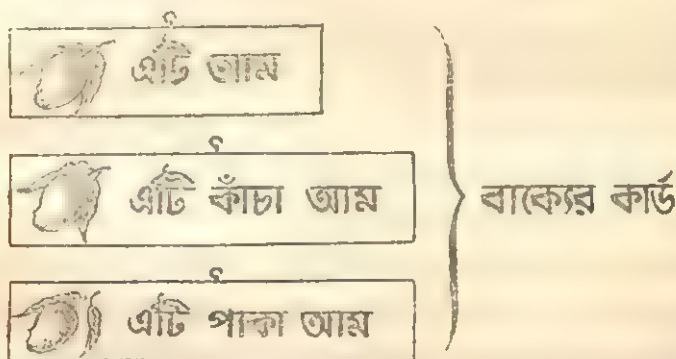 এটি আম
এটি কাঁচা আম
এটি পাকা আম
বাক্যের কার্ড